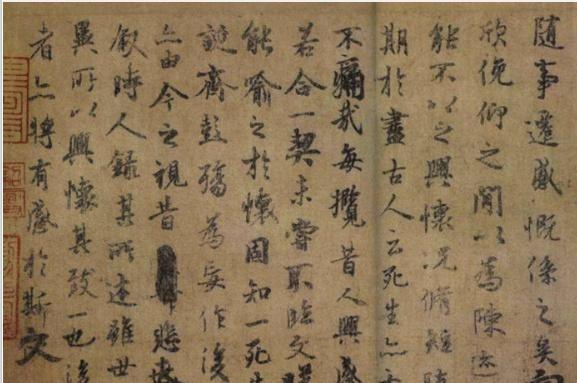 隨事遷感慨係之矣向
欣俛仰之閒以為陳迹
能不以之興懷況脩短隨
期於盡古人云死生亦
不痛哉每攬昔人興感
若合一契未嘗不臨文嗟
能喻之於懷固知一死生
誕齊彭殤為妄作後
亦由今之視昔悲夫
敘時人錄其所述雖世
異所以興懷其致一也後
者亦將有感於斯文